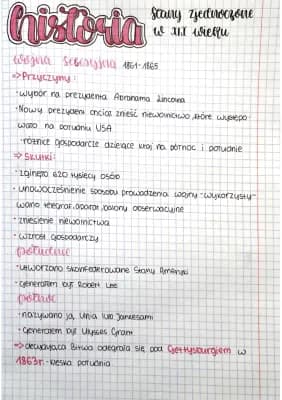 historia
Stany zjednoczone
w XIX wieku
wojna secesyjna 1861-1865
=> Przyczyny:
· wybór na prezydenta Abrahama Lincolna
· Nowy prezydent chciał znieść niewolnictwo, które występo-
wało na południu USA
· różnice gospodarcze dzielące kraj na północ i południe
=> Skutki:
· zginęło 620 tysięcy osób
· unowocześnienie sposobu prowadzenia wojny - wykorzysty-
wano telegraf, balony obserwacyjne
· zniesienie niewolnictwa
· wzrost gospodarczy
południe
· utworzono skonfederowane Stany Ameryki
· generałem był Robert Lee
północ
· nazywano ją Unią lub Jankesami
· Generałem był Ulysses Grant
=> decydująca Bitwa odegrała się pod Gettysburgiem w
1863r. - klęska południa